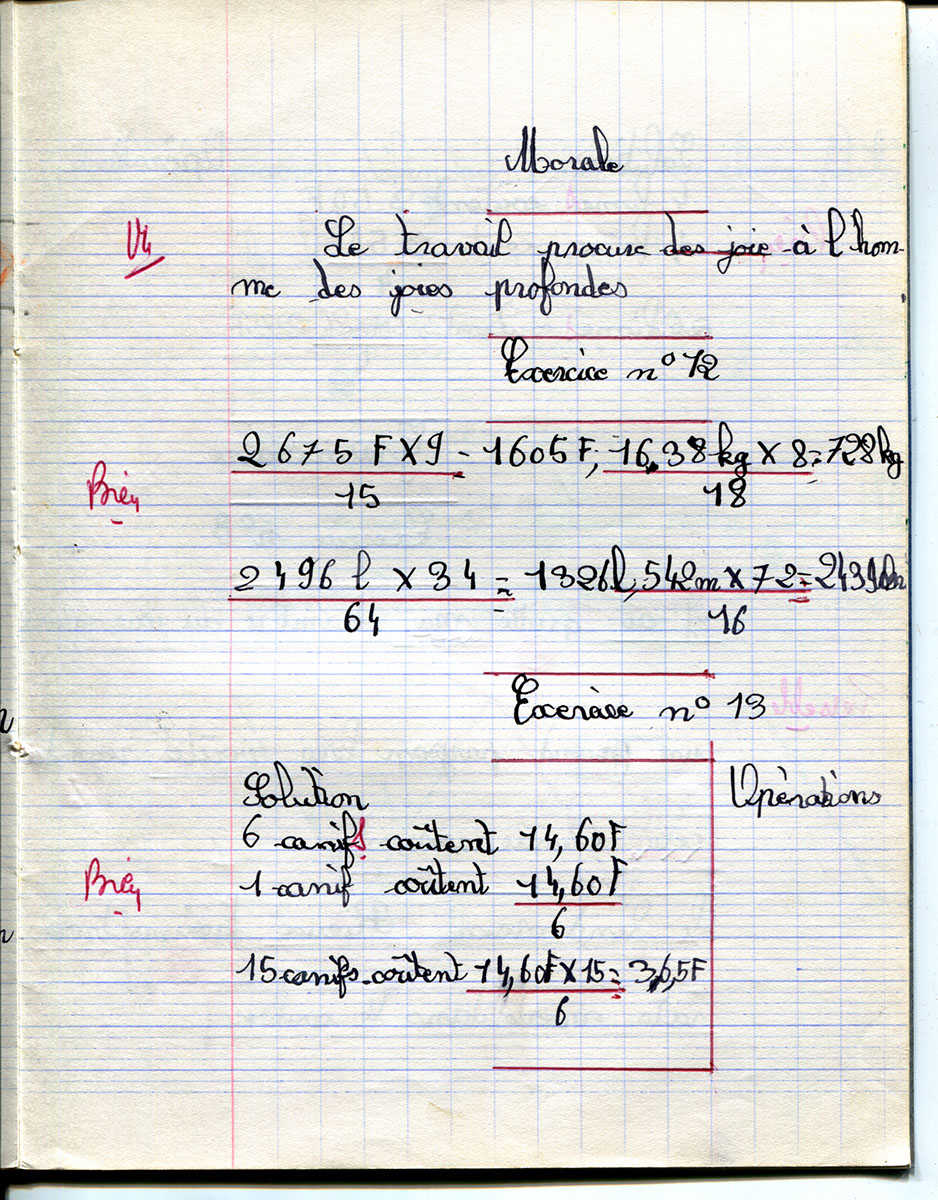 Morale
Vu
Le travail procure des joie à l'hom-
me des joies profondes
Exercice n° 12
2675 F X 9 = 1605 F; 16.38 kg x 8 = 728 kg
15 18
Bien
2496 l x 34 = 1326 l, 542 m x 72 = 2439 m
64 16
Exercice n° 13
Solution Opérations
6 canifs coûtent 14,60F
Bien
1 canif coûtent 14,60F
6
15 canifs coûtent 14,60F x 15 = 36,5F
6